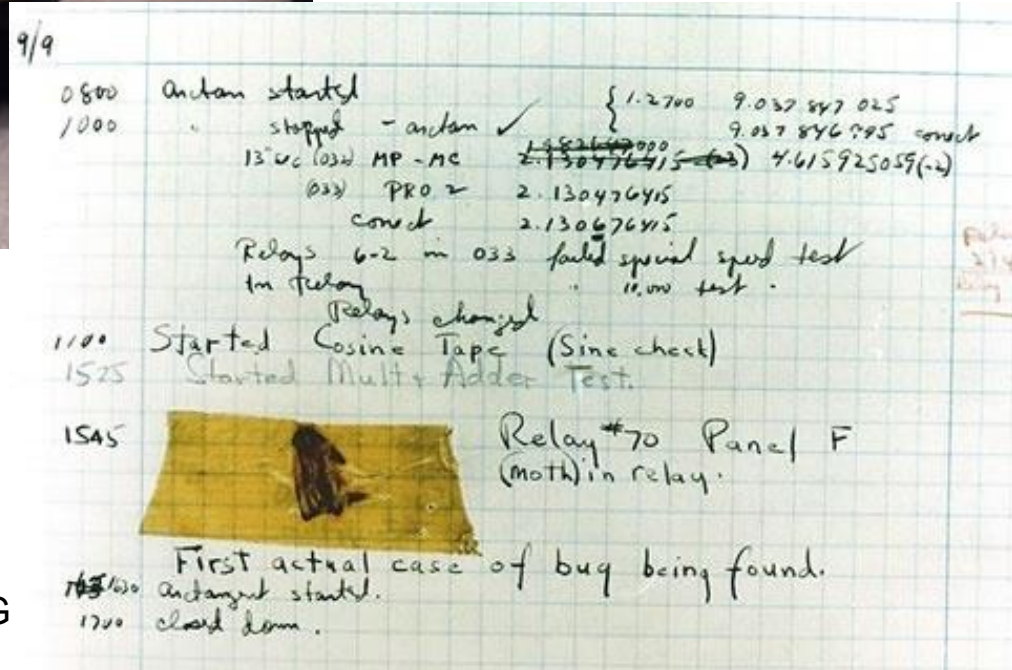 9/9
0800 antan started { 1.2700 9.037 847 025
1000 " stopped - antan ✓ 9.037 846 995 conect
13"uc (032) MP-MC 2.130476415 (-3) 4.615925059(-2)
(033) PRO 2 2.130476415
conect 2.130676415
Relays 6-2 in 033 failed special speed test
In Relay " 10.000 test .
Relays changed
1100 Started Cosine Tape (Sine check)
1525 Started Mult + Adder Test.
1545 Relay #70 Panel F
(moth) in relay.
First actual case of bug being found.
1630 antangent started.
1700 closed down.
G